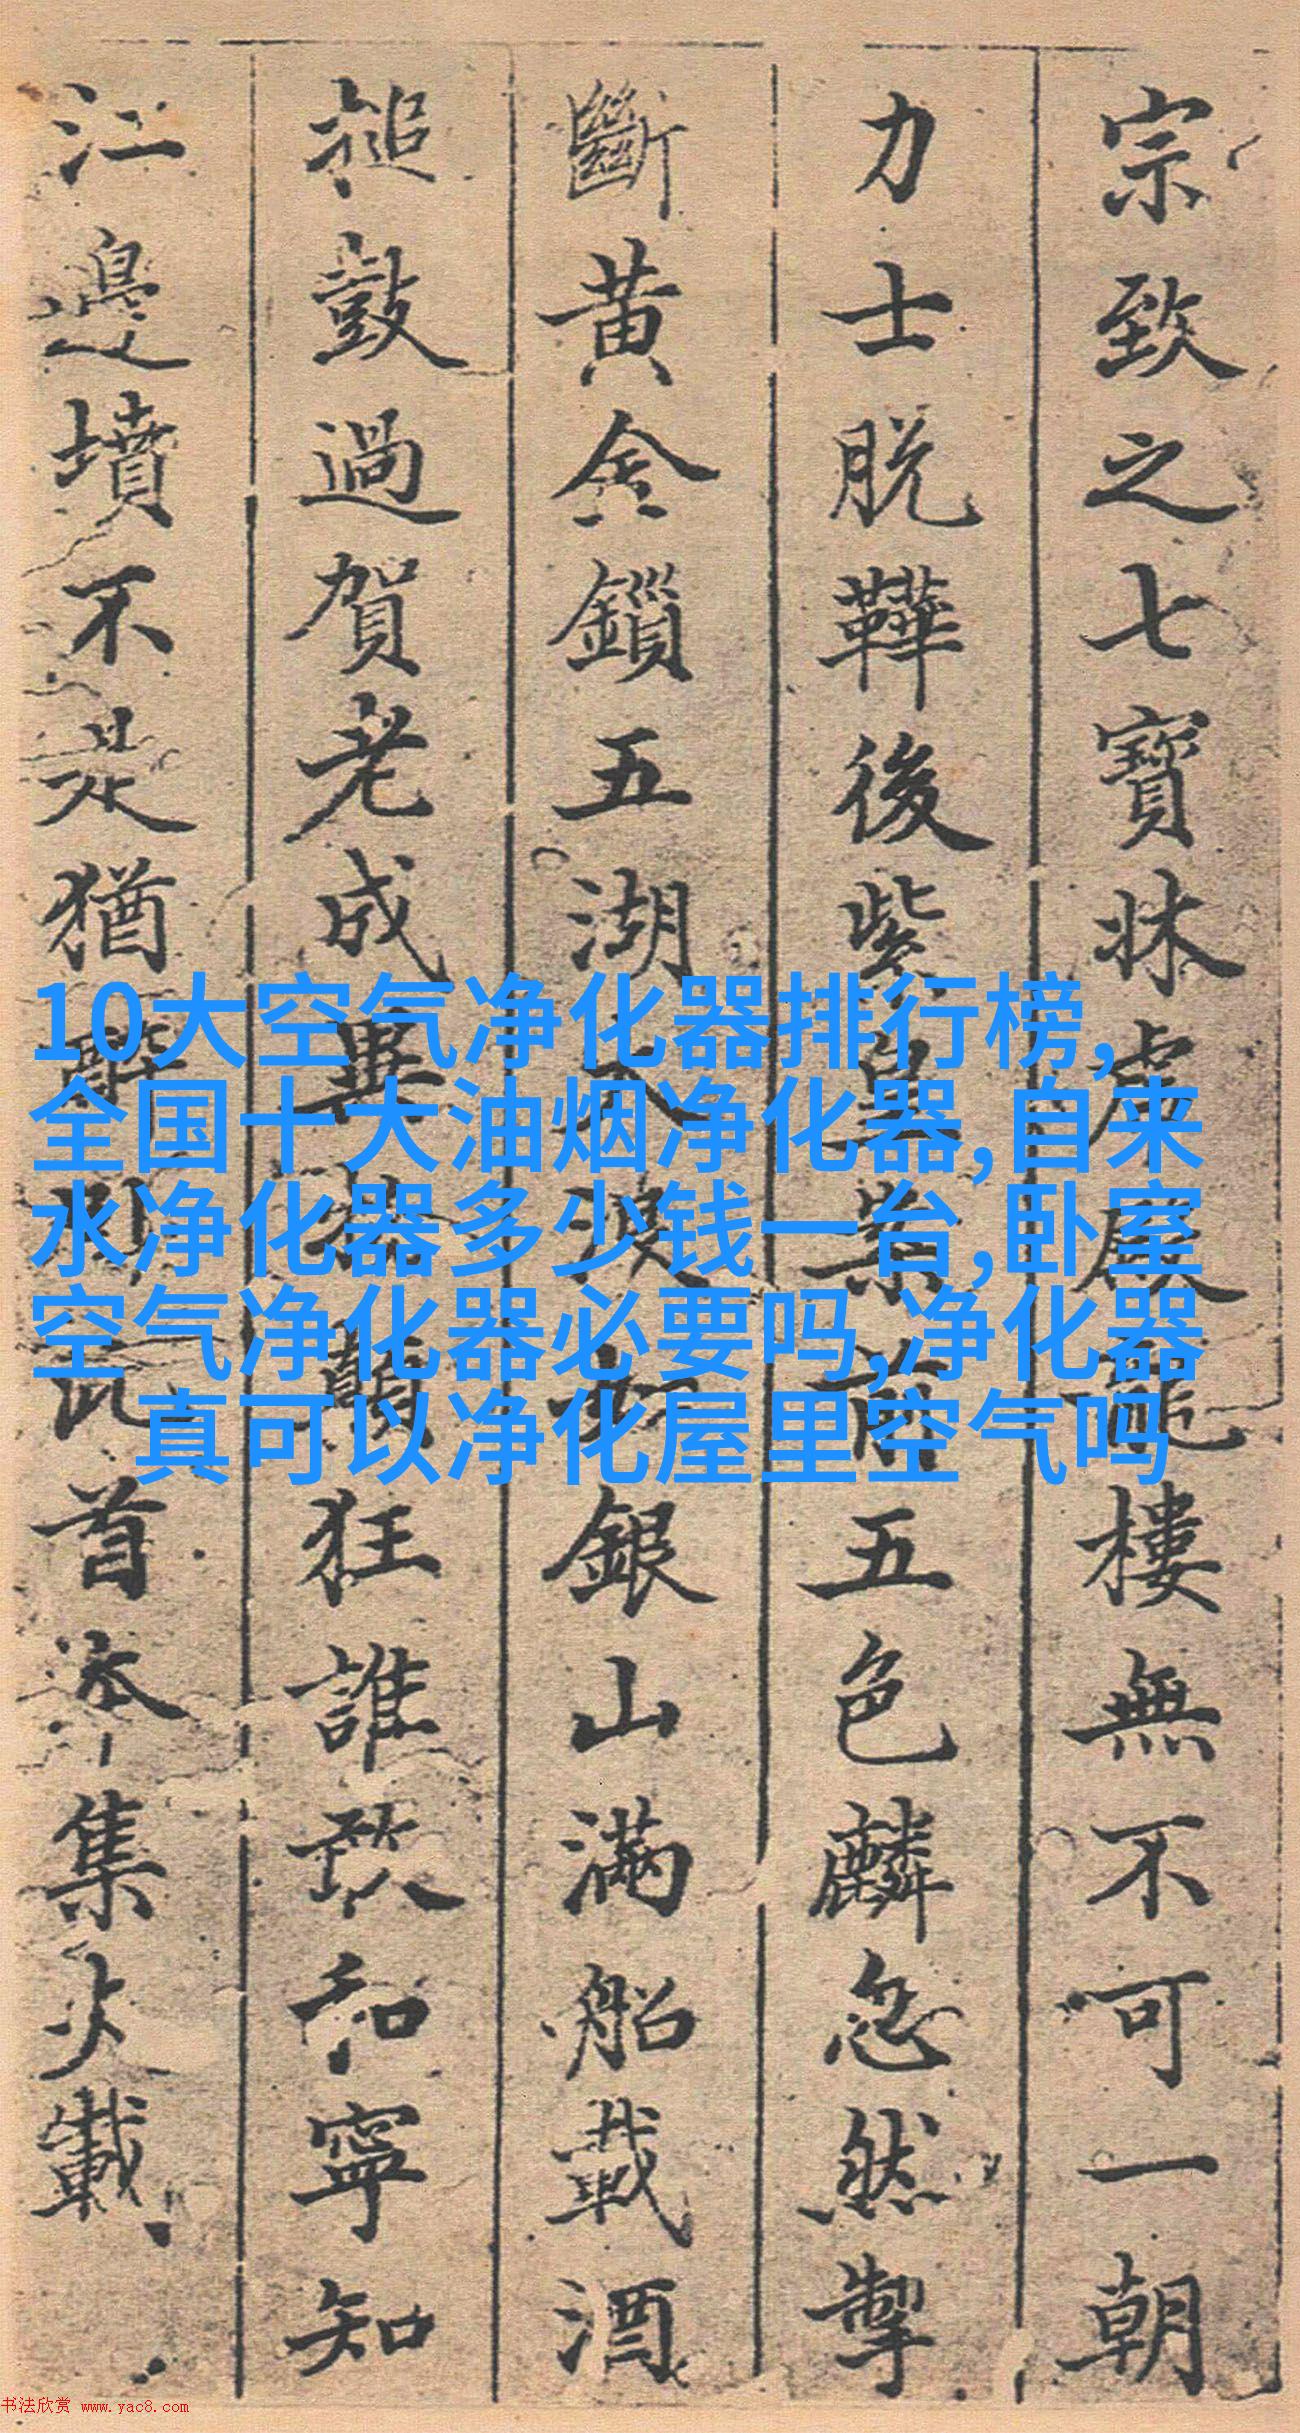 宗致之七寶牀虛殿龍樓無不可一朝
力士脫鞾後紫皇案前五色麟忽然掣
斷黃金鎖五湖大浪如銀山滿船載酒
搥鼓過賀老成異物顛狂誰敢和寧知
江邊墳不是猶醉卧此首本集載
10大空气净化器排行榜,
全国十大油烟净化器,自来
水净化器多少钱一台,卧室
空气净化器必要吗,净化器
真可以净化屋里空气吗
书法欣赏 www.yac8.com